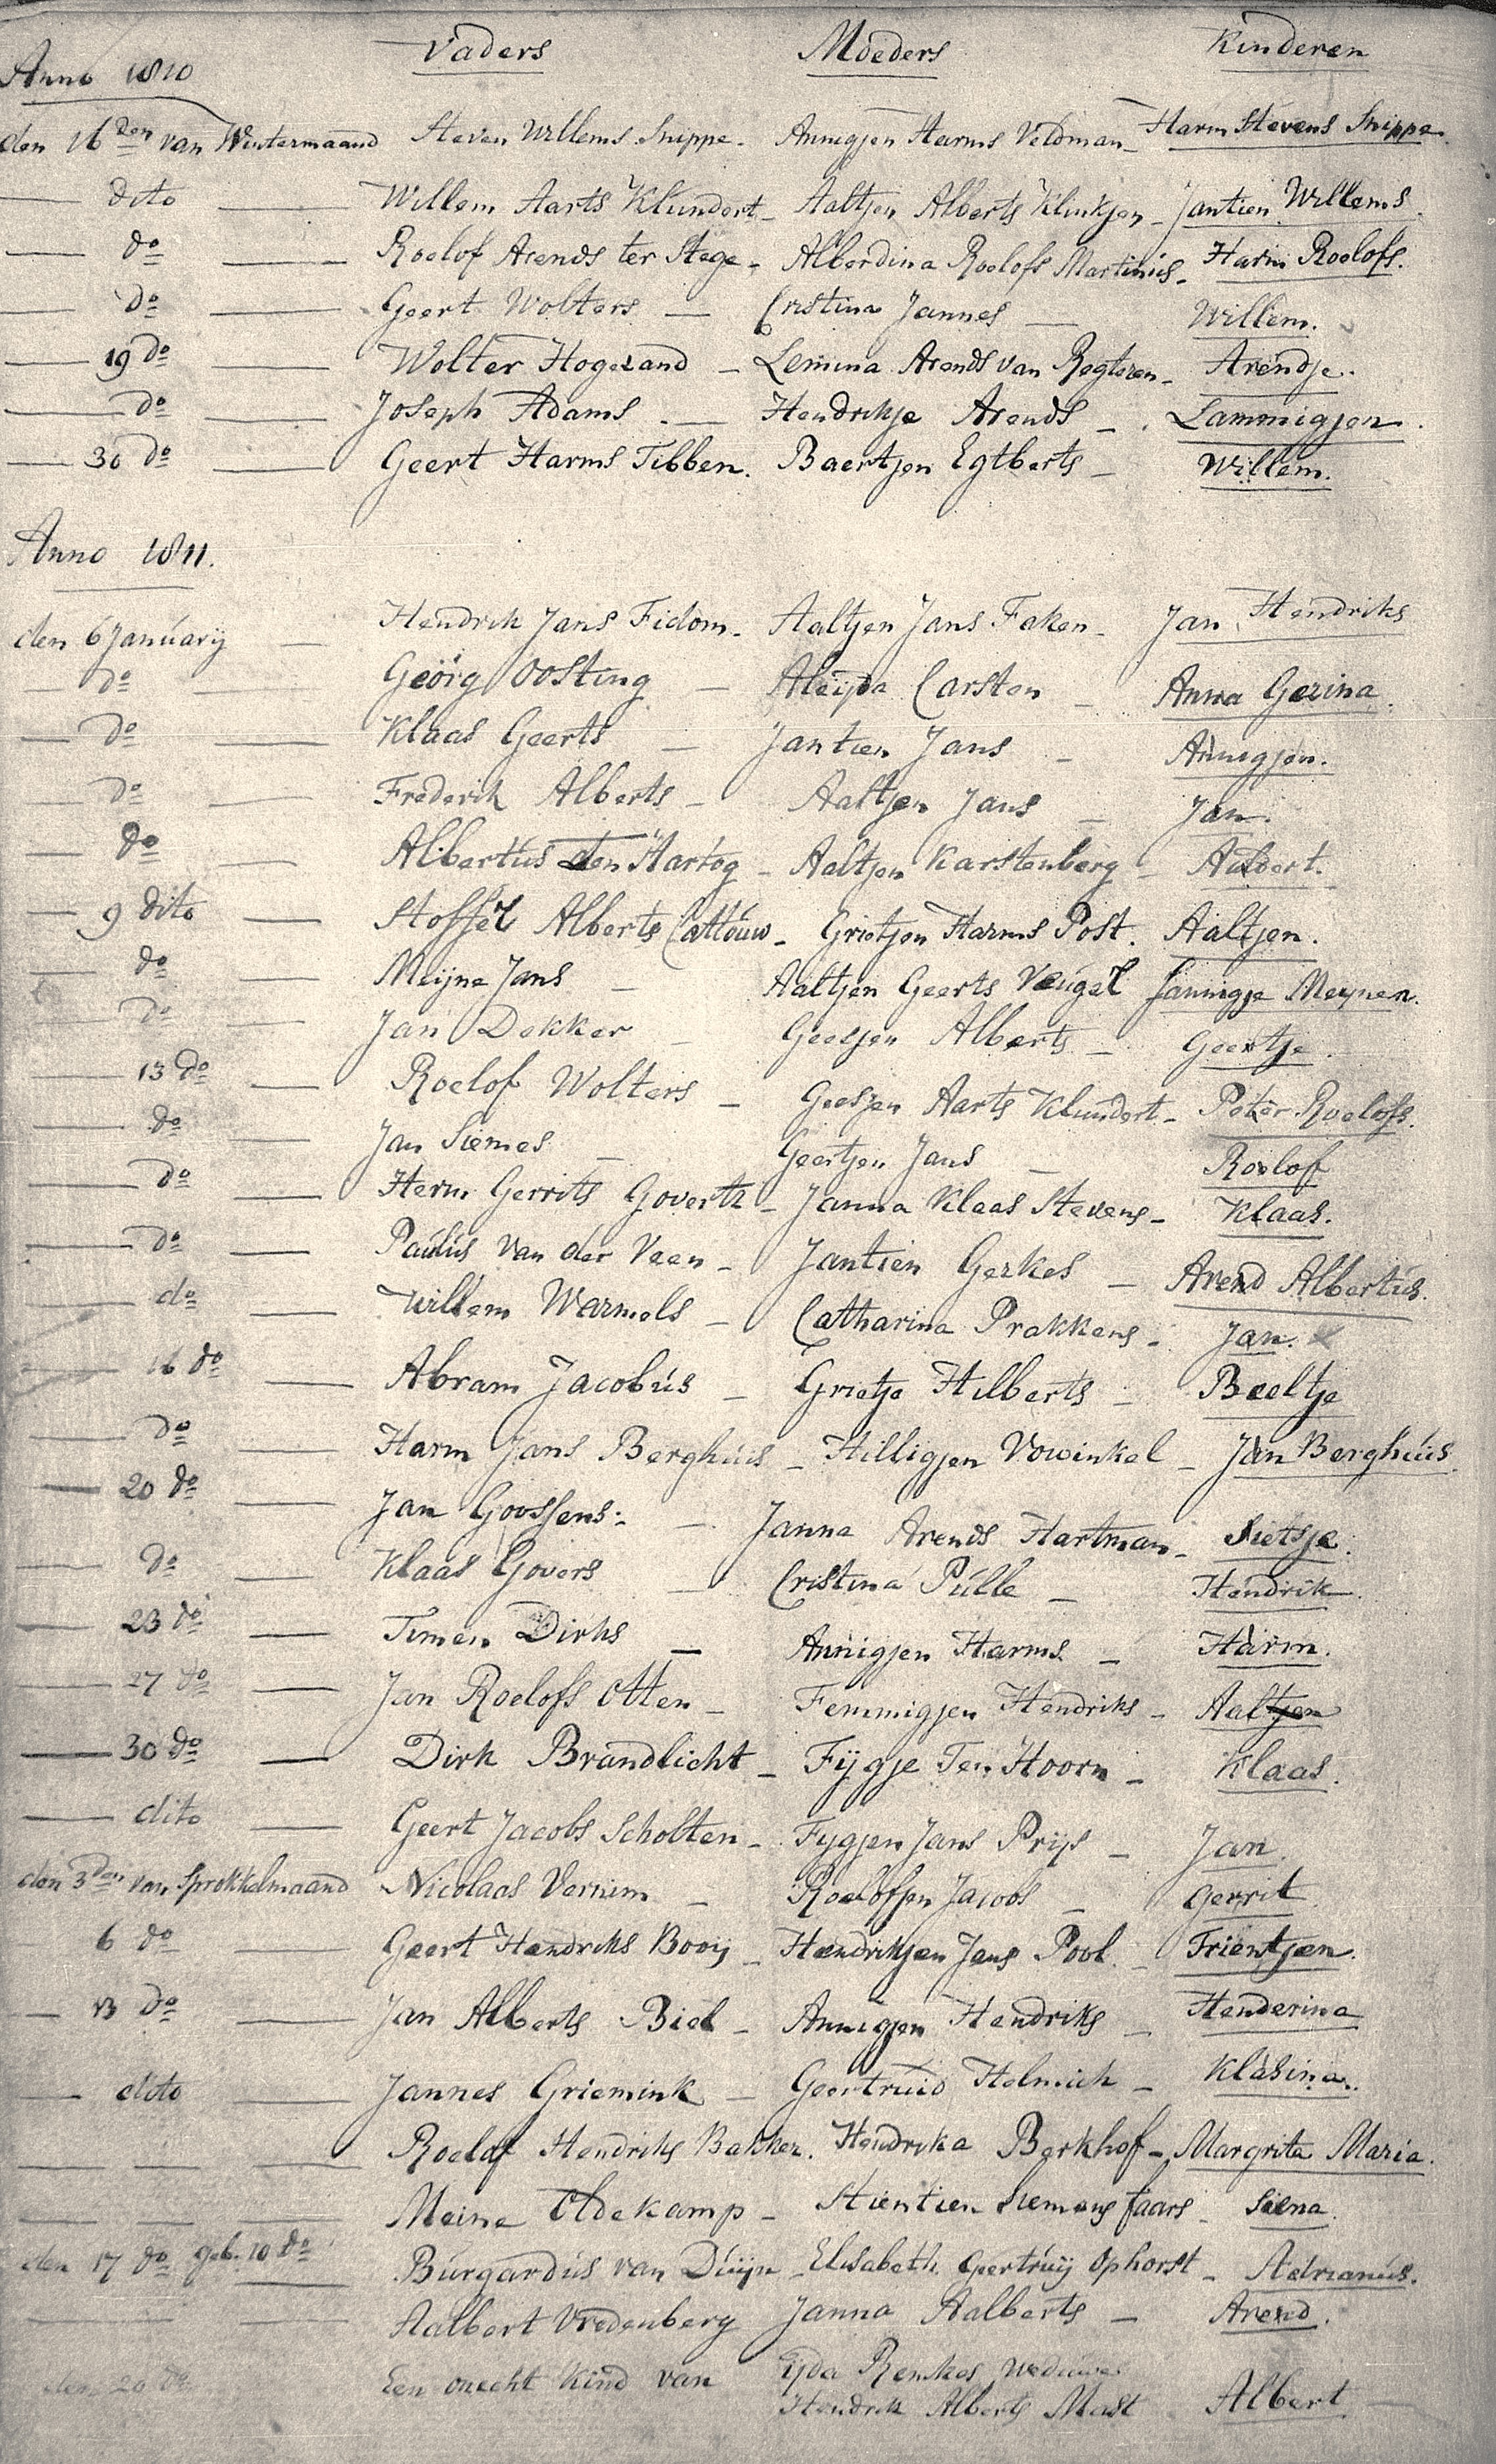 Vaders Moeders Kinderen
Anno 1810
den 16den van Wintermaand Steven Willems Snippe - Annigjen Harms Veldman - Harm Stevens Snippe.
dito Willem Aarts Klundert - Aaltjen Alberts Klinkjen - Jantien Willems.
do Roelof Arends ter Stege - Alberdina Roelofs Martinus - Harm Roelofs.
do Geert Wolters - Cristina Jannes - Willem.
19 do Wolter Hogezand - Lemina Arends van Regteren - Arendje.
do Joseph Adams - Hendrikje Arends - Lammigjen.
30 do Geert Harms Tibben. Baertjen Egtberts - Willem.
Anno 1811.
den 6 Januarij - Hendrik Jans Fidom - Aaltjen Jans Faken - Jan Hendriks
do Geörg Oosting - Aleijda Carsten - Anna Gezina.
do Klaas Geerts - Jantien Jans - Annigjen.
do Frederik Alberts - Aaltjen Jans - Jan.
do Albertus den Hartog - Aaltjen Karstenberg - Aalbert.
9 dito Stoffel Alberts Cattouw - Grietjen Harms Post. Aaltjen.
do Meijne Jans - Aaltjen Geerts Veugel Jannigje Meynen.
do Jan Dekker - Geesjen Alberts - Geertje.
13 do Roelof Wolters - Geesjen Aarts Klundert - Peter Roelofs.
do Jan Siemes - Geertjen Jans - Roelof
do Herm Gerrits Govertz - Janna Klaas Stevens - Klaas.
do Paulus van der Veen - Jantien Gerkes - Arend Albertus.
do Willem Warmels - Catharina Prakkens - Jan.
16 do Abram Jacobus - Grietje Hilberts - Beeltje
do Harm Jans Berghuis - Hilligjen Vowinkel - Jan Berghuis.
20 do Jan Goossens - Janna Arends Hartman - Sietsje.
do Klaas Govers - Cristina Pulle - Hendrik.
23 do Timen Dirks - Annigjen Harms - Harm.
27 do Jan Roelofs Otten - Femmigjen Hendriks - Aaltjen
30 do Dirk Brandlicht - Fijgje Ten Hoorn - Klaas.
dito Geert Jacobs Scholten - Fygjen Jans Prijs - Jan.
den 3den van Sprokkelmaand Nicolaas Vernim - Roelofjen Jacobs - Gerrit
6 do Geert Hendriks Booij - Hendrikjen Jans Pool - Trientjen.
13 do Jan Alberts Biel - Annigjen Hendriks - Henderina
dito Jannes Griemink - Geertruid Helmich - Klasina.
Roelof Hendriks Bakker. Hendrika Berkhof - Margrita Maria.
Meine Oldekamp - Stientien Siemens Faars - Siena.
den 17 do geb. 10 do Burgardus van Duijn - Elisabeth Geertruij Ophorst - Adrianus.
Aalbert Vredenberg Janna Aalberts - Arend.
den 20 do Een onecht Kind van Ijda Remkes weduwe
Hendrik Alberts Mast Albert